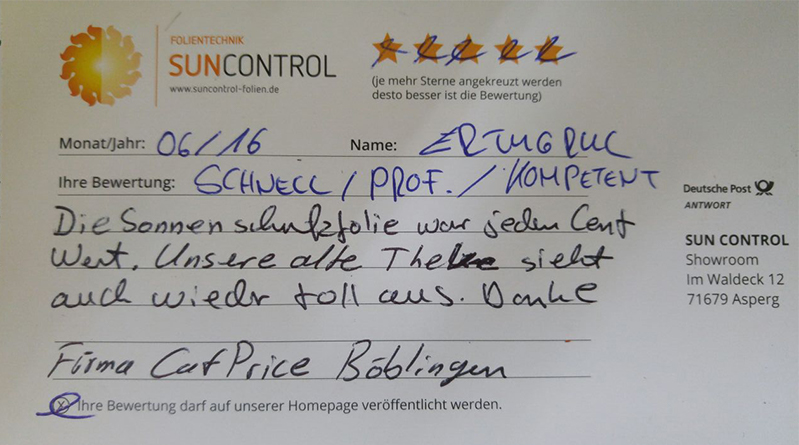 FOLIENTECHNIK
SUNCONTROL
www.suncontrol-folien.de
(je mehr Sterne angekreuzt werden
desto besser ist die Bewertung)
Monat/Jahr: 06/16 Name: ERTUGRUL
Ihre Bewertung: SCHNELL / PROF. / KOMPETENT
Die Sonnenschutzfolie war jeden Cent
Wert. Unsere alte Theke sieht
auch wieder toll aus. Danke
Firma CutPrice Böblingen
(x) Ihre Bewertung darf auf unserer Homepage veröffentlicht werden.
Deutsche Post
ANTWORT
SUN CONTROL
Showroom
Im Waldeck 12
71679 Asperg